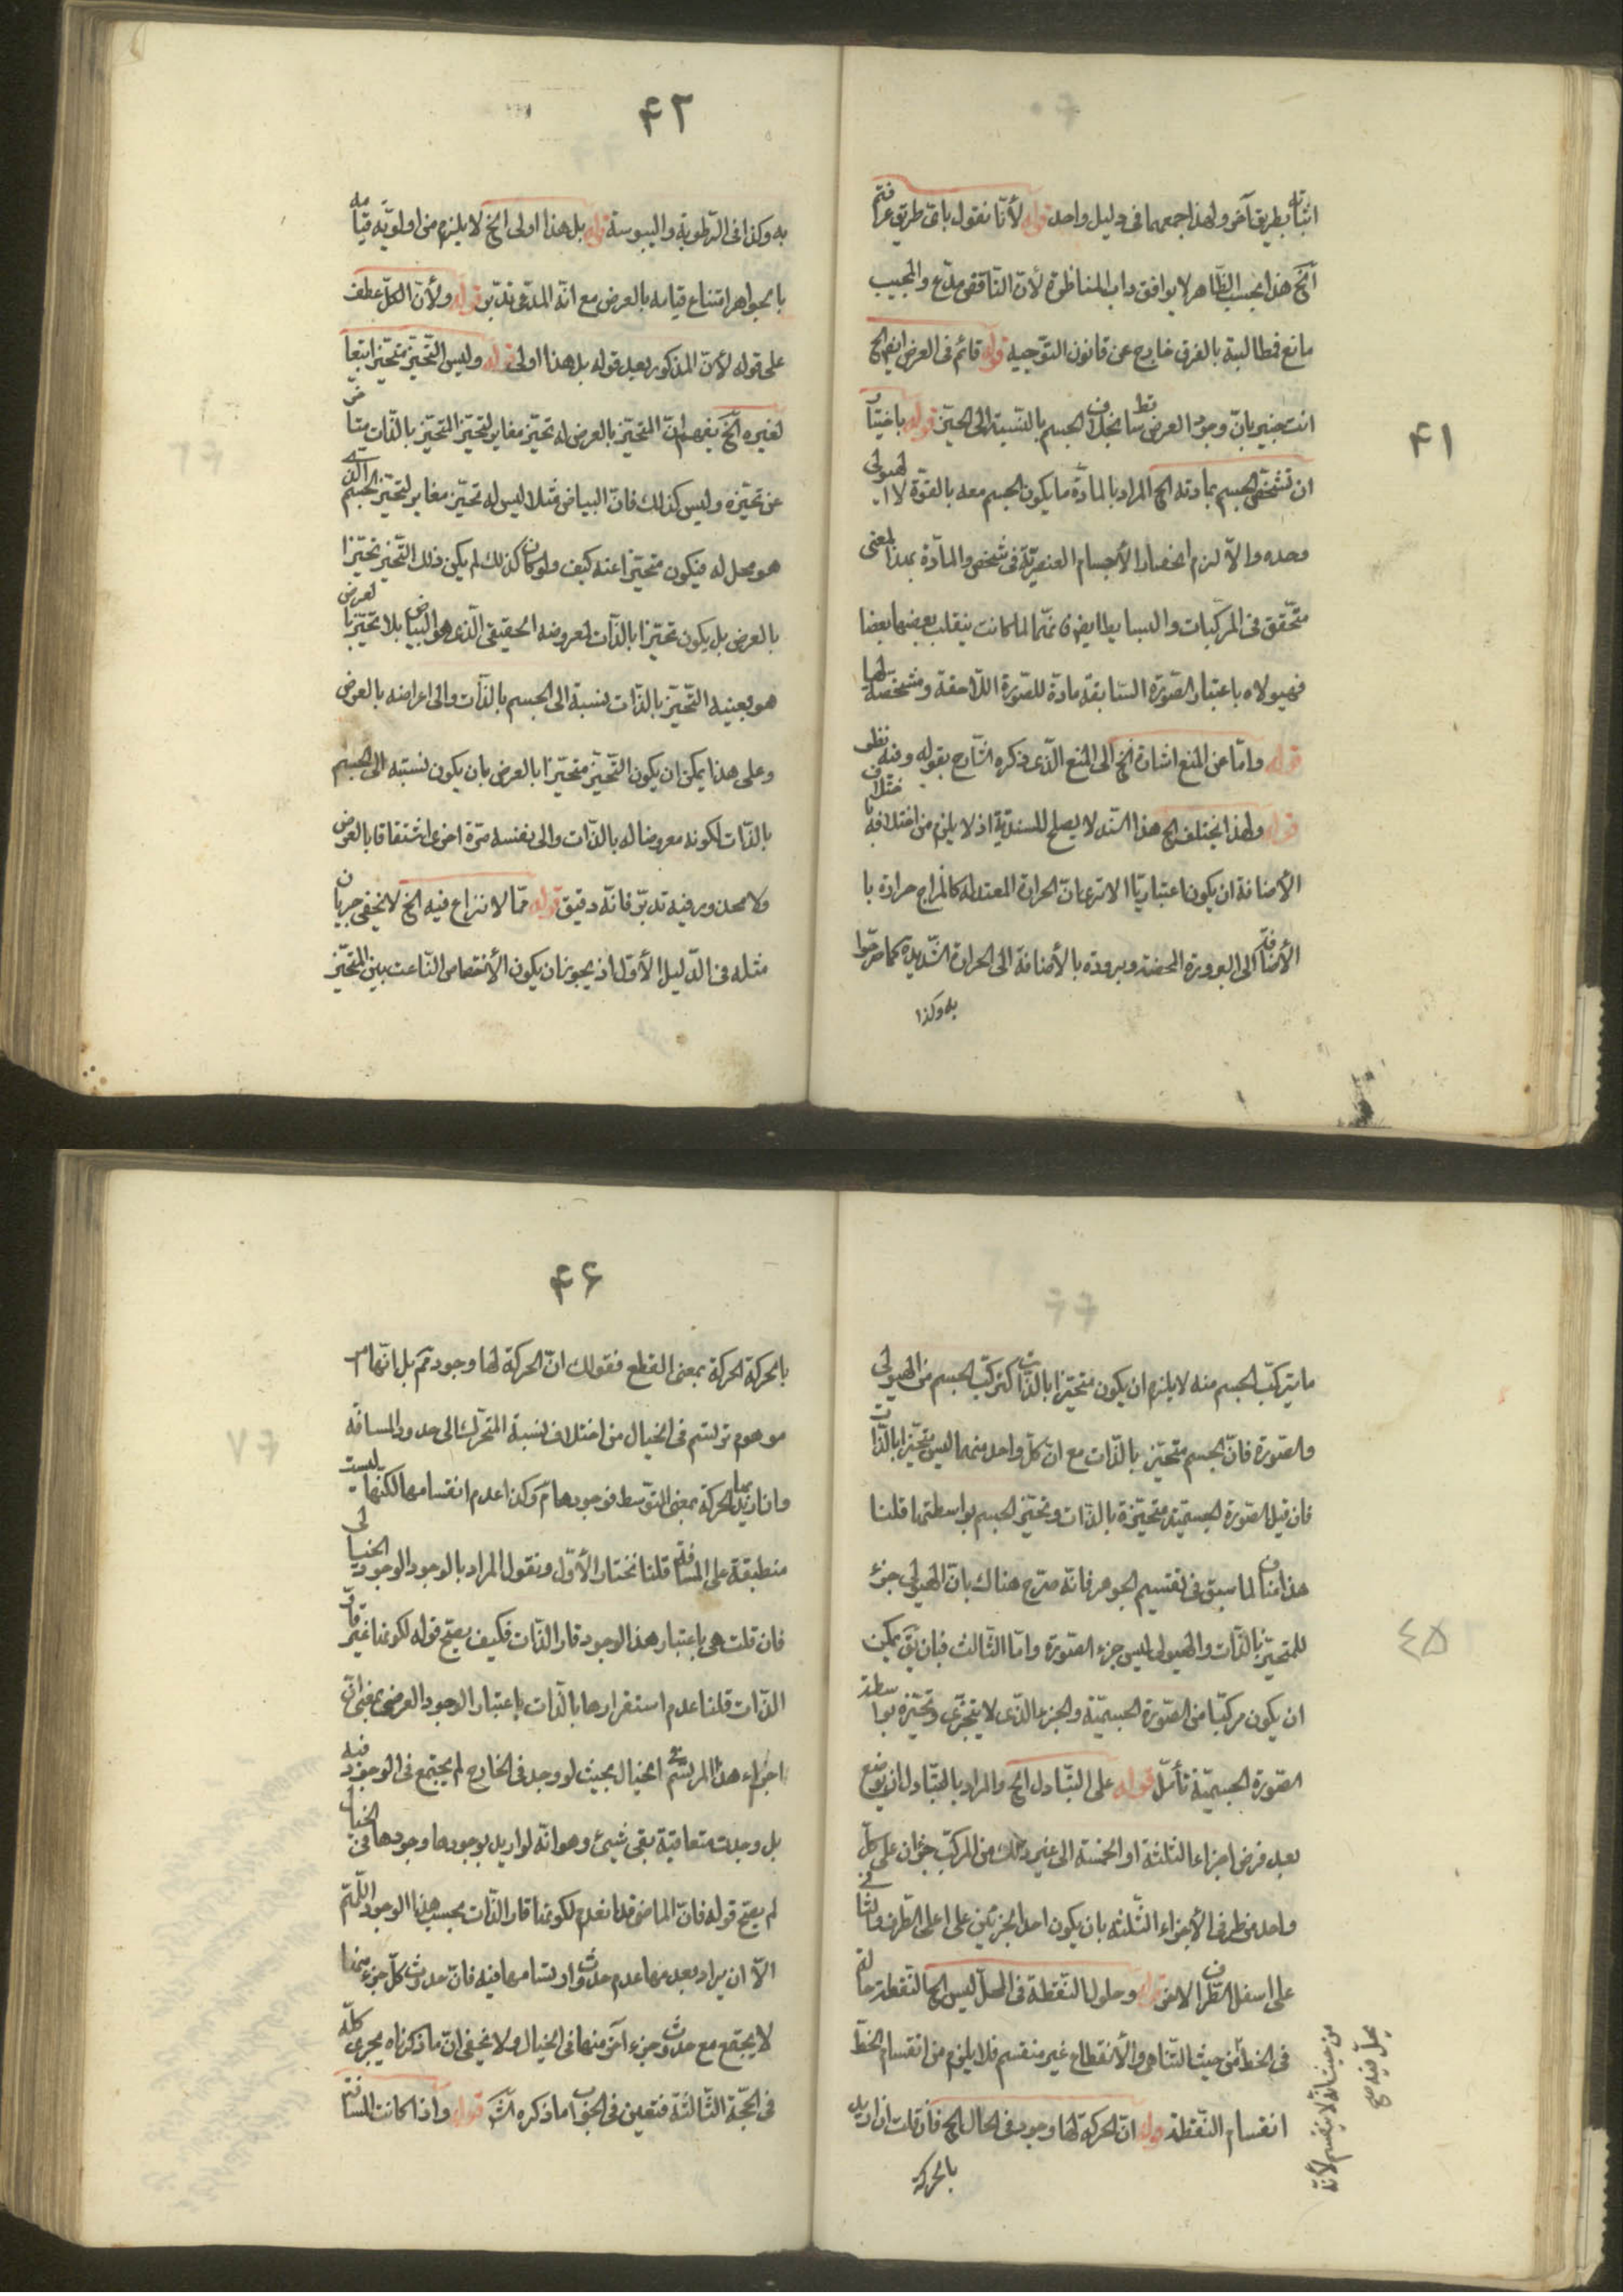 ٤١
اثباته بطريق آخر ولهذا جمعهما فى دليل واحد قوله لأنّا نقول باىّ طريق عرفتم
آلخ هذا بحسب الظّاهر لا يوافق داب المناظرة لأنّ النّاقض مدّع والمجيب
مانع فمطالبته بالفرق خارج عن قانون التّوجيه قوله قائم فى العرض ايض الخ
انت خبير بانّ وجود العرض بخلاف الجسم بالنّسبة الى الحيّز قوله باختيار
ان تشخّص الجسم بمادته الخ المراد بالمادّة ما يكون الجسم معه بالقوّة لا الهيولى
وحده والّا لزم انحصار الأجسام العنصريّة فى شخص والمادّة بهذا المعنى
متحقّق فى المركّبات والبسايط ايض فانّها لما كانت ينقلب بعضها بعضا
فهيولاه باعتبار الصّورة السّابقة مادّة للصّورة اللّاحقة ومشخّصة لها
قوله وامّا عن المنع اشارة الخ الى المنع الّذى ذكره الشّارح بقوله وفيه نظر
قوله ولهذا يختلف الخ هذا السّند لا يصلح للسنديّة اذ لا يلزم من اختلافه باختلاف
الأضافة ان يكون اعتباريّا الا ترى انّ الحرارة المعتدلة كالمزاج حرارة با
الأضافة الى البرودة المحضة وبرودة بالأضافة الى الحرارة الشّديدة كما صرّحوا
به وكذا
٤٢
به وكذا فى الرّطوبة واليبوسة قوله بل هذا اولى الخ لا يلزم من اولويّة قيامه
بالجواهر امتناع قيامه بالعرض مع انّه المدّعى تدبّر قوله ولأنّ الكلّ عطف
على قوله لأنّ المذكور بعيد قوله بل هذا اولى قوله وليس التّحيّز متحيّزا تبعا
لغيره آلخ يفهم انّ المتحيّز بالعرض له تحيّز مغاير لتحيّز المتحيّز بالذّات متأخّر
عن تحيّزه وليس كذلك فانّ البياض مثلا ليس له تحيّز مغاير لتحيّز الجسم الّذى
هو محلّ له فيكون متحيّزا عنه كيف ولو كان كذلك لم يكن ذلك التّحيّز تحيّزا
بالعرض بل يكون تحيّزا بالذّات لعروضه الحقيقى الّذى هو البياض بلا تحيّز بالعرض
هو بعينه التّحيّز بالذّات نسبة الى الجسم بالذّات والى اعراضه بالعرض
وعلى هذا يمكن ان يكون التّحيّز متحيّزا بالعرض بان يكون نسبته الى الجسم
بالذّات لكونه معروضا له بالذّات والى نفسه مرّة اخرى اشتقاقا بالعرض
ولا محذور فيه تدبّر فانّه دقيق قوله ممّا لا نزاع فيه الخ لا يخفى جريان
مثله فى الدّليل الأوّل اذ يجوز ان يكون الأختصاص النّاعت بين المتحيّز
٤٥
ما يتركّب الجسم منه لا يلزم ان يكون متحيّزا بالذّات كتركّب الجسم من الهيولى
والصّورة فانّ الجسم متحيّز بالذّات مع انّ كلّ واحد منهما ليس متحيّزا بالذّات
فان قيل الصّورة الجسميّة متحيّزة بالذّات وتحيّز الجسم بواسطتها قلنا
هذا مناف لما سبق فى تقسيم الجوهر فانّه صرّح هناك بانّ الهيولى جزء
للمتحيّز بالذّات والهيولى ليس جزء الصّورة وامّا الثّالث فبان يق يمكن
ان يكون مركّبا من الصّورة الجسميّة والجزء الّذى لا يتجزّى وتحيّزه بواسطة
الصّورة الجسميّة تأمّل قوله على التّبادل الخ والمراد بالتّبادل ان يوضع
بعد فرض اجزاء الثلثة او الخمسة الى غير ذلك من المركّب جزءان على كلّ
واحد من طرفى الأجزاء الثّلثة بان يكون احد الجزئين على اعلى الطّرف والثّانى
على اسفل الطّرف الاخر قوله وحلول النّقطة فى المحلّ ليس الخ النّقطة حالّة
فى الخطّ من حيث التّناهى والأنقطاع غير منقسم فلا يلزم من انقسام الخطّ
انقسام النّقطة قوله انّ الحركة لها وجود فى الحال الخ فان قلت ان اريد
بالحركة
من حيث انّه لا ينقسم لأنّه
محلّ فيه صح
٤٦
بالحركة الحركة بمعنى القطع فقولك انّ الحركة لها وجود ثمّ بل انّها امر
موهوم ترتسم فى الخيال من اختلاف نسبة المتحرّك الى حدود المسافة
وان اريد بها الحركة بمعنى التوسّط فوجودها مّ وكذا عدم انقسامها لكنّها ليست
منطبقة على المسافة قلنا نختار الأوّل ونقول المراد بالوجود الوجود الخيالى
فان قلت هى باعتبار هذا الوجود قار الذّات فكيف يصحّ قوله لكونها غير قارّ
الذّات قلنا عدم استقرارها بالذّات باعتبار الوجود العرضى بمعنى انّ
اجزاء هذا المرتسم فى الخيال بحيث لو وجد فى الخارج لم يجتمع فى الوجود فيه
بل وجدت متعاقبة بقى شيئ وهو انّه لو اريد بوجودها وجودها فى الخيال
لم يصحّ قوله فانّ الماضى قد انعدم لكونها قار الذّات بحسب هذا الوجود اللّهمّ
الّا ان يراد بعدمها عدم حدوث اوتسامها فيه فانّ حدوث كلّ جزء منها
لا يجتمع مع حدوث جزء آخر منها فى الخيال ولا يخفى انّ ما ذكرناه يجرى كلّه
فى الحجّة الثّالثة فتعيّن فى الجواب ما ذكره الشّ قوله واذا كانت المسافة